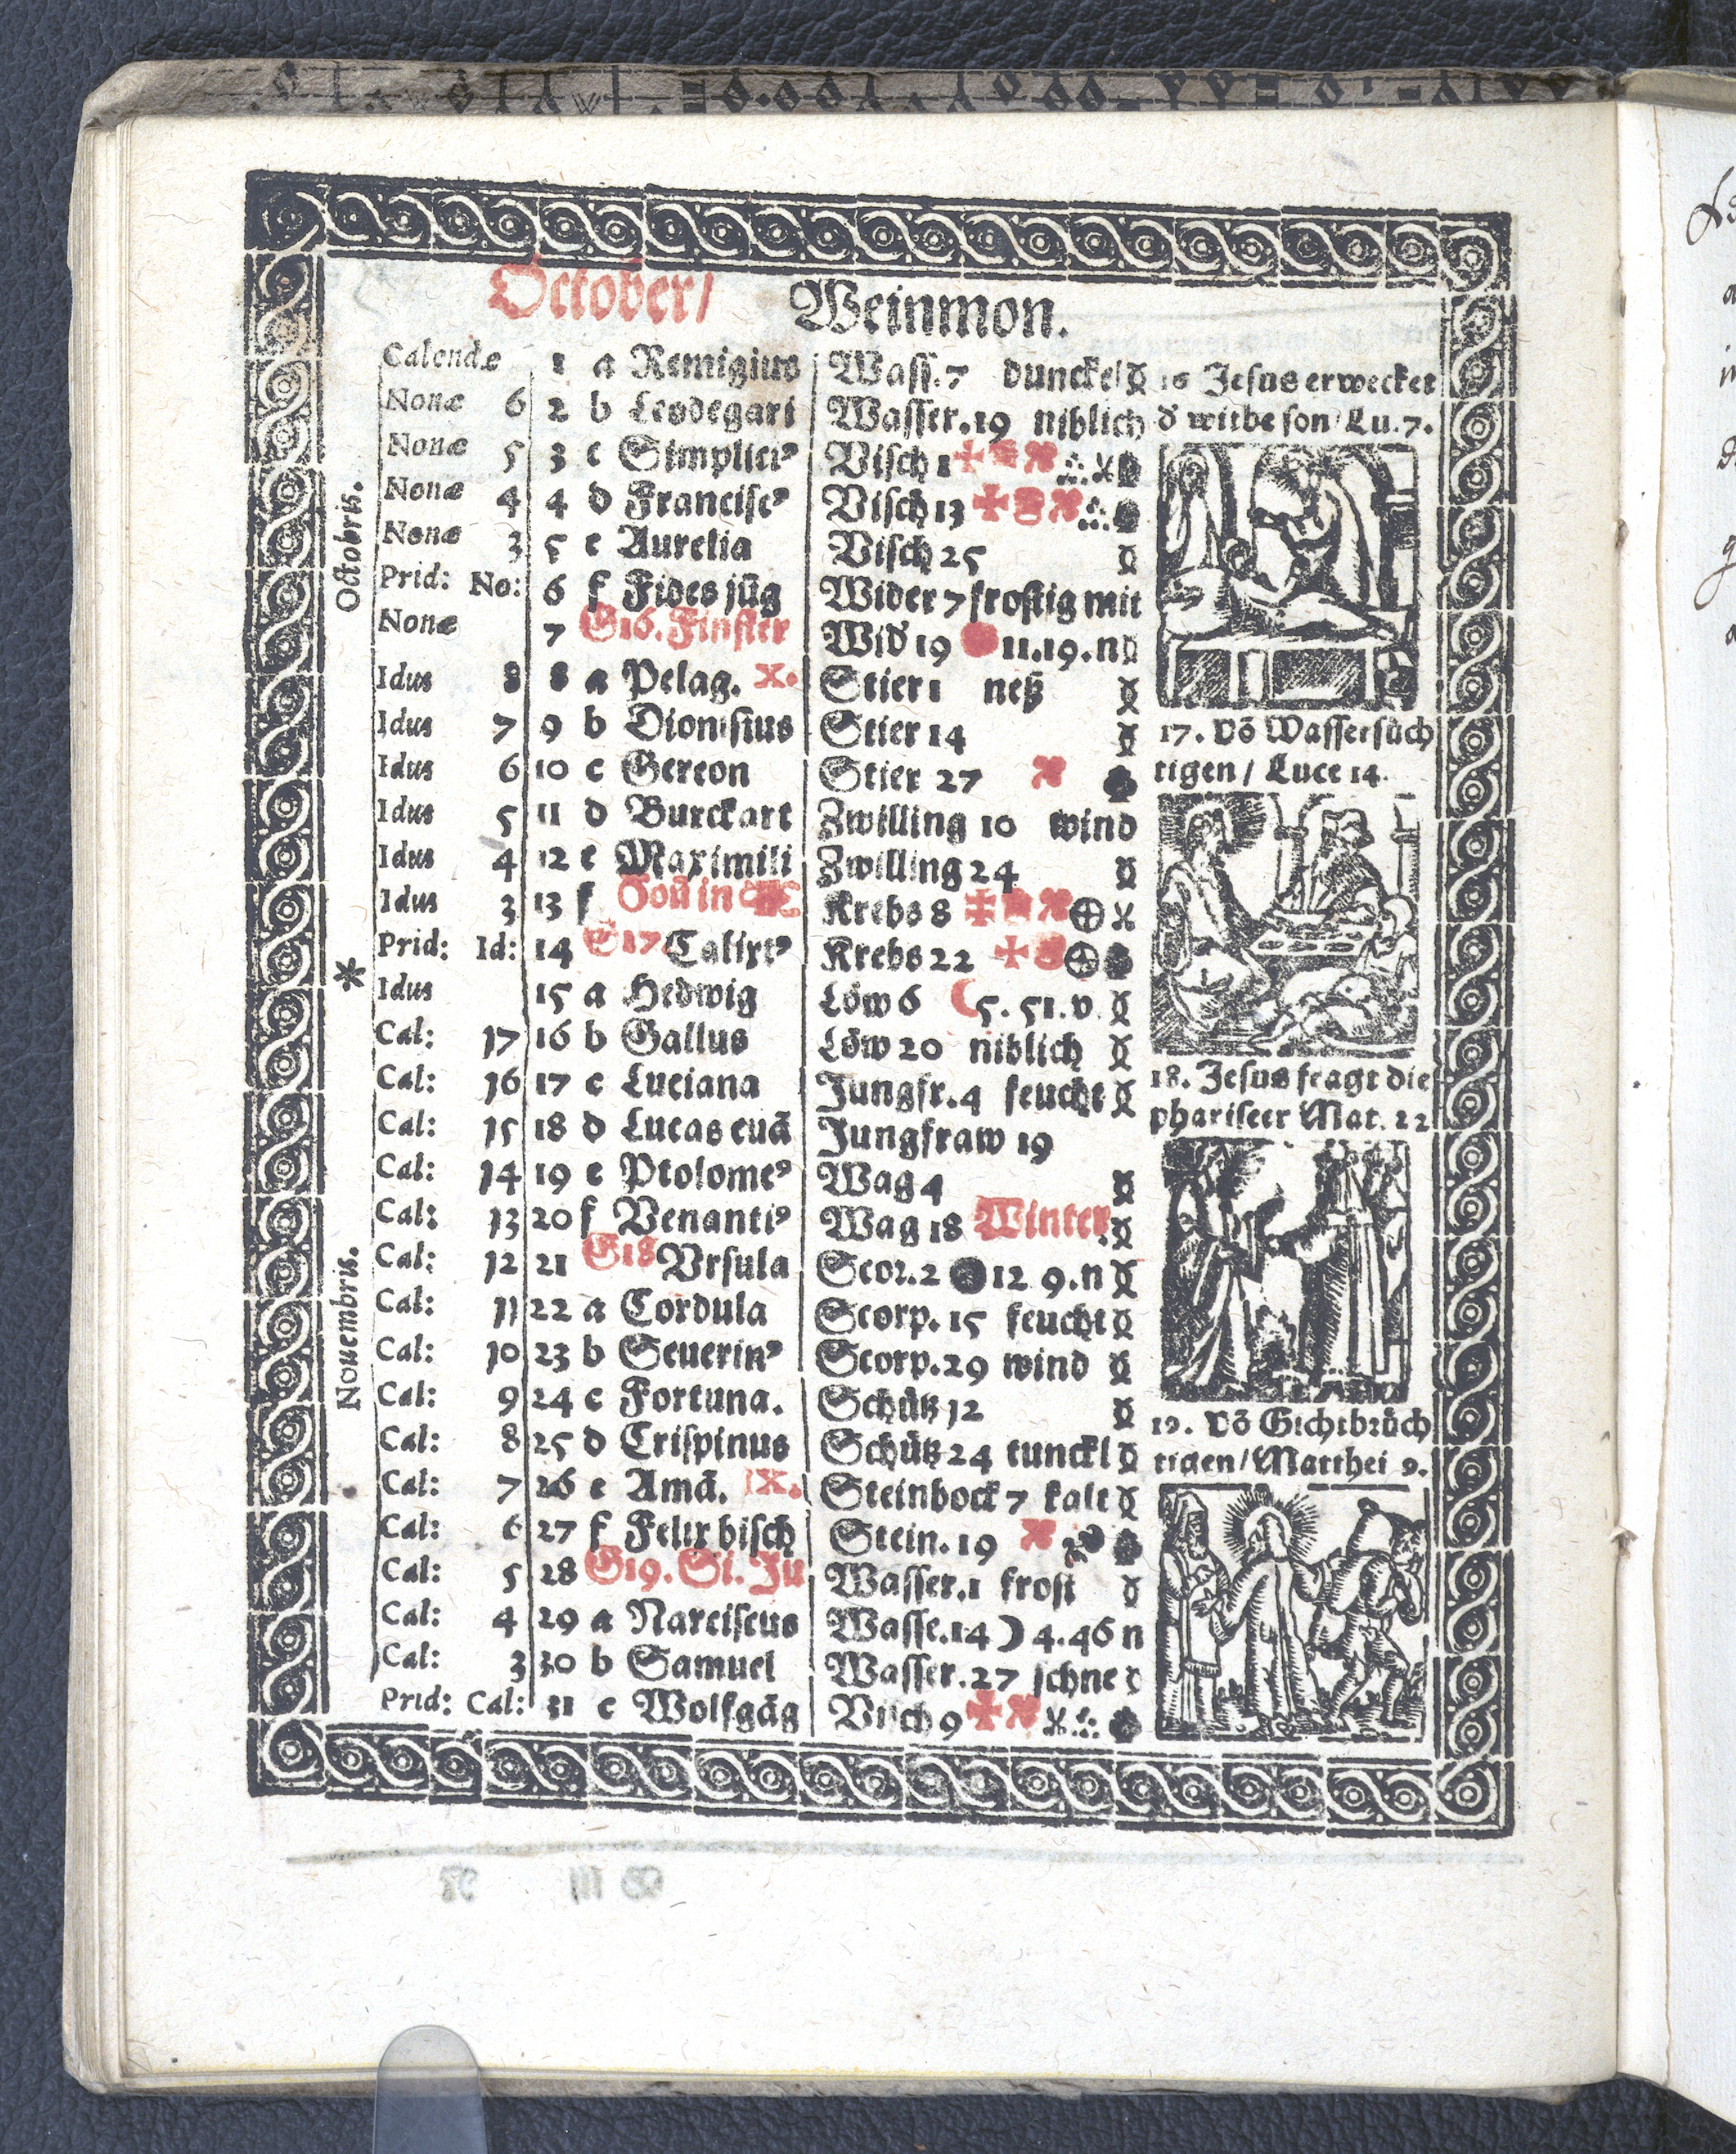 October/ Weinmon.
Calendæ 1 a Remigius Wass. 7 dunckel
Nonæ 6 2 b Leodegari Wasser. 19 niblich
Nonæ 5 3 c Simplici⁹ Visch 1
Nonæ 4 4 d Francisc⁹ Visch 13
Nonæ 3 5 e Aurelia Visch 25
Prid: No: 6 f Fides jūg Wider 7 frostig mit
Nonæ 7 G16. Finster Wid 19 11.19.n
Idus 8 8 a Pelag. X. Stier 1 netz
Idus 7 9 b Dionisius Stier 14
Idus 6 10 c Gereon Stier 27
Idus 5 11 d Burckart Zwilling 10 wind
Idus 4 12 e Maximili Zwilling 24
Idus 3 13 f in Krebs 8
Prid: Id: 14 G17 Calixt⁹ Krebs 22
Idus 15 a Hedwig Löw 6 5. 51. v
Cal: 17 16 b Gallus Löw 20 niblich
Cal: 16 17 c Luciana Jungfr. 4 feucht
Cal: 15 18 d Lucas euā Jungfraw 19
Cal: 14 19 e Ptolome⁹ Wag 4
Cal: 13 20 f Venanti⁹ Wag 18 Winter.
Cal: 12 21 G18 Vrsula Scor. 2 12 9.n
Cal: 11 22 a Cordula Scorp. 15 feucht
Cal: 10 23 b Seuerin⁹ Scorp. 29 wind
Cal: 9 24 c Fortuna. Schütz 12
Cal: 8 25 d Crispinus Schütz 24 tunckl
Cal: 7 26 e Amā. IX. Steinbock 7 kalt
Cal: 6 27 f Felix bisch Stein. 19
Cal: 5 28 G19. Si. Ju Wasser. 1 frost
Cal: 4 29 a Narciscus Wasse. 14 ☽ 4.46 n
Cal: 3 30 b Samuel Wasser. 27 schne
Prid: Cal: 31 c Wolfgāg Visch 9
Octobris.
*
Nouembris.
16 Jesus erwecket
d' witbe son/Lu. 7.
17. Vō Wassersüch
tigen / Luce 14.
18. Jesus fragt die
phariseer Mat. 22
19. Vō Gichtbrüch
tigen/Matthei 9.